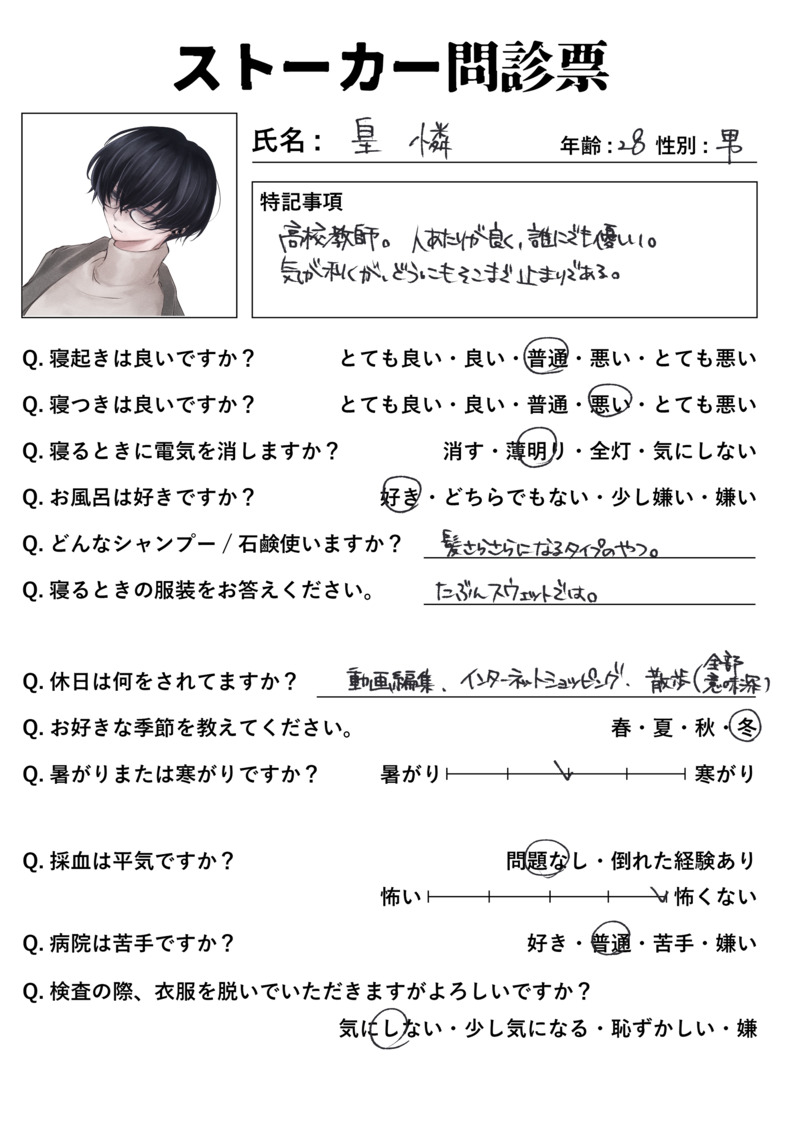 ストーカー問診票
氏名: 皇 憐 年齢:28 性別:男
特記事項
高校教師。人あたりが良く、誰にでも優しい。
気が利くが、どうにもそこまで止まりである。
Q. 寝起きは良いですか? とても良い・良い・普通・悪い・とても悪い
Q. 寝つきは良いですか? とても良い・良い・普通・悪い・とても悪い
Q. 寝るときに電気を消しますか? 消す・薄明り・全灯・気にしない
Q. お風呂は好きですか? 好き・どちらでもない・少し嫌い・嫌い
Q. どんなシャンプー / 石鹸使いますか? 髪さらさらになるタイプのやつ。
Q. 寝るときの服装をお答えください。 たぶんスウェットでは。
Q. 休日は何をされてますか? 動画編集、インターネットショッピング、散歩(全部意味深)
Q. お好きな季節を教えてください。 春・夏・秋・冬
Q. 暑がりまたは寒がりですか? 暑がり 寒がり
Q. 採血は平気ですか? 問題なし・倒れた経験あり
怖い 怖くない
Q. 病院は苦手ですか? 好き・普通・苦手・嫌い
Q. 検査の際、衣服を脱いでいただきますがよろしいですか?
気にしない・少し気になる・恥ずかしい・嫌